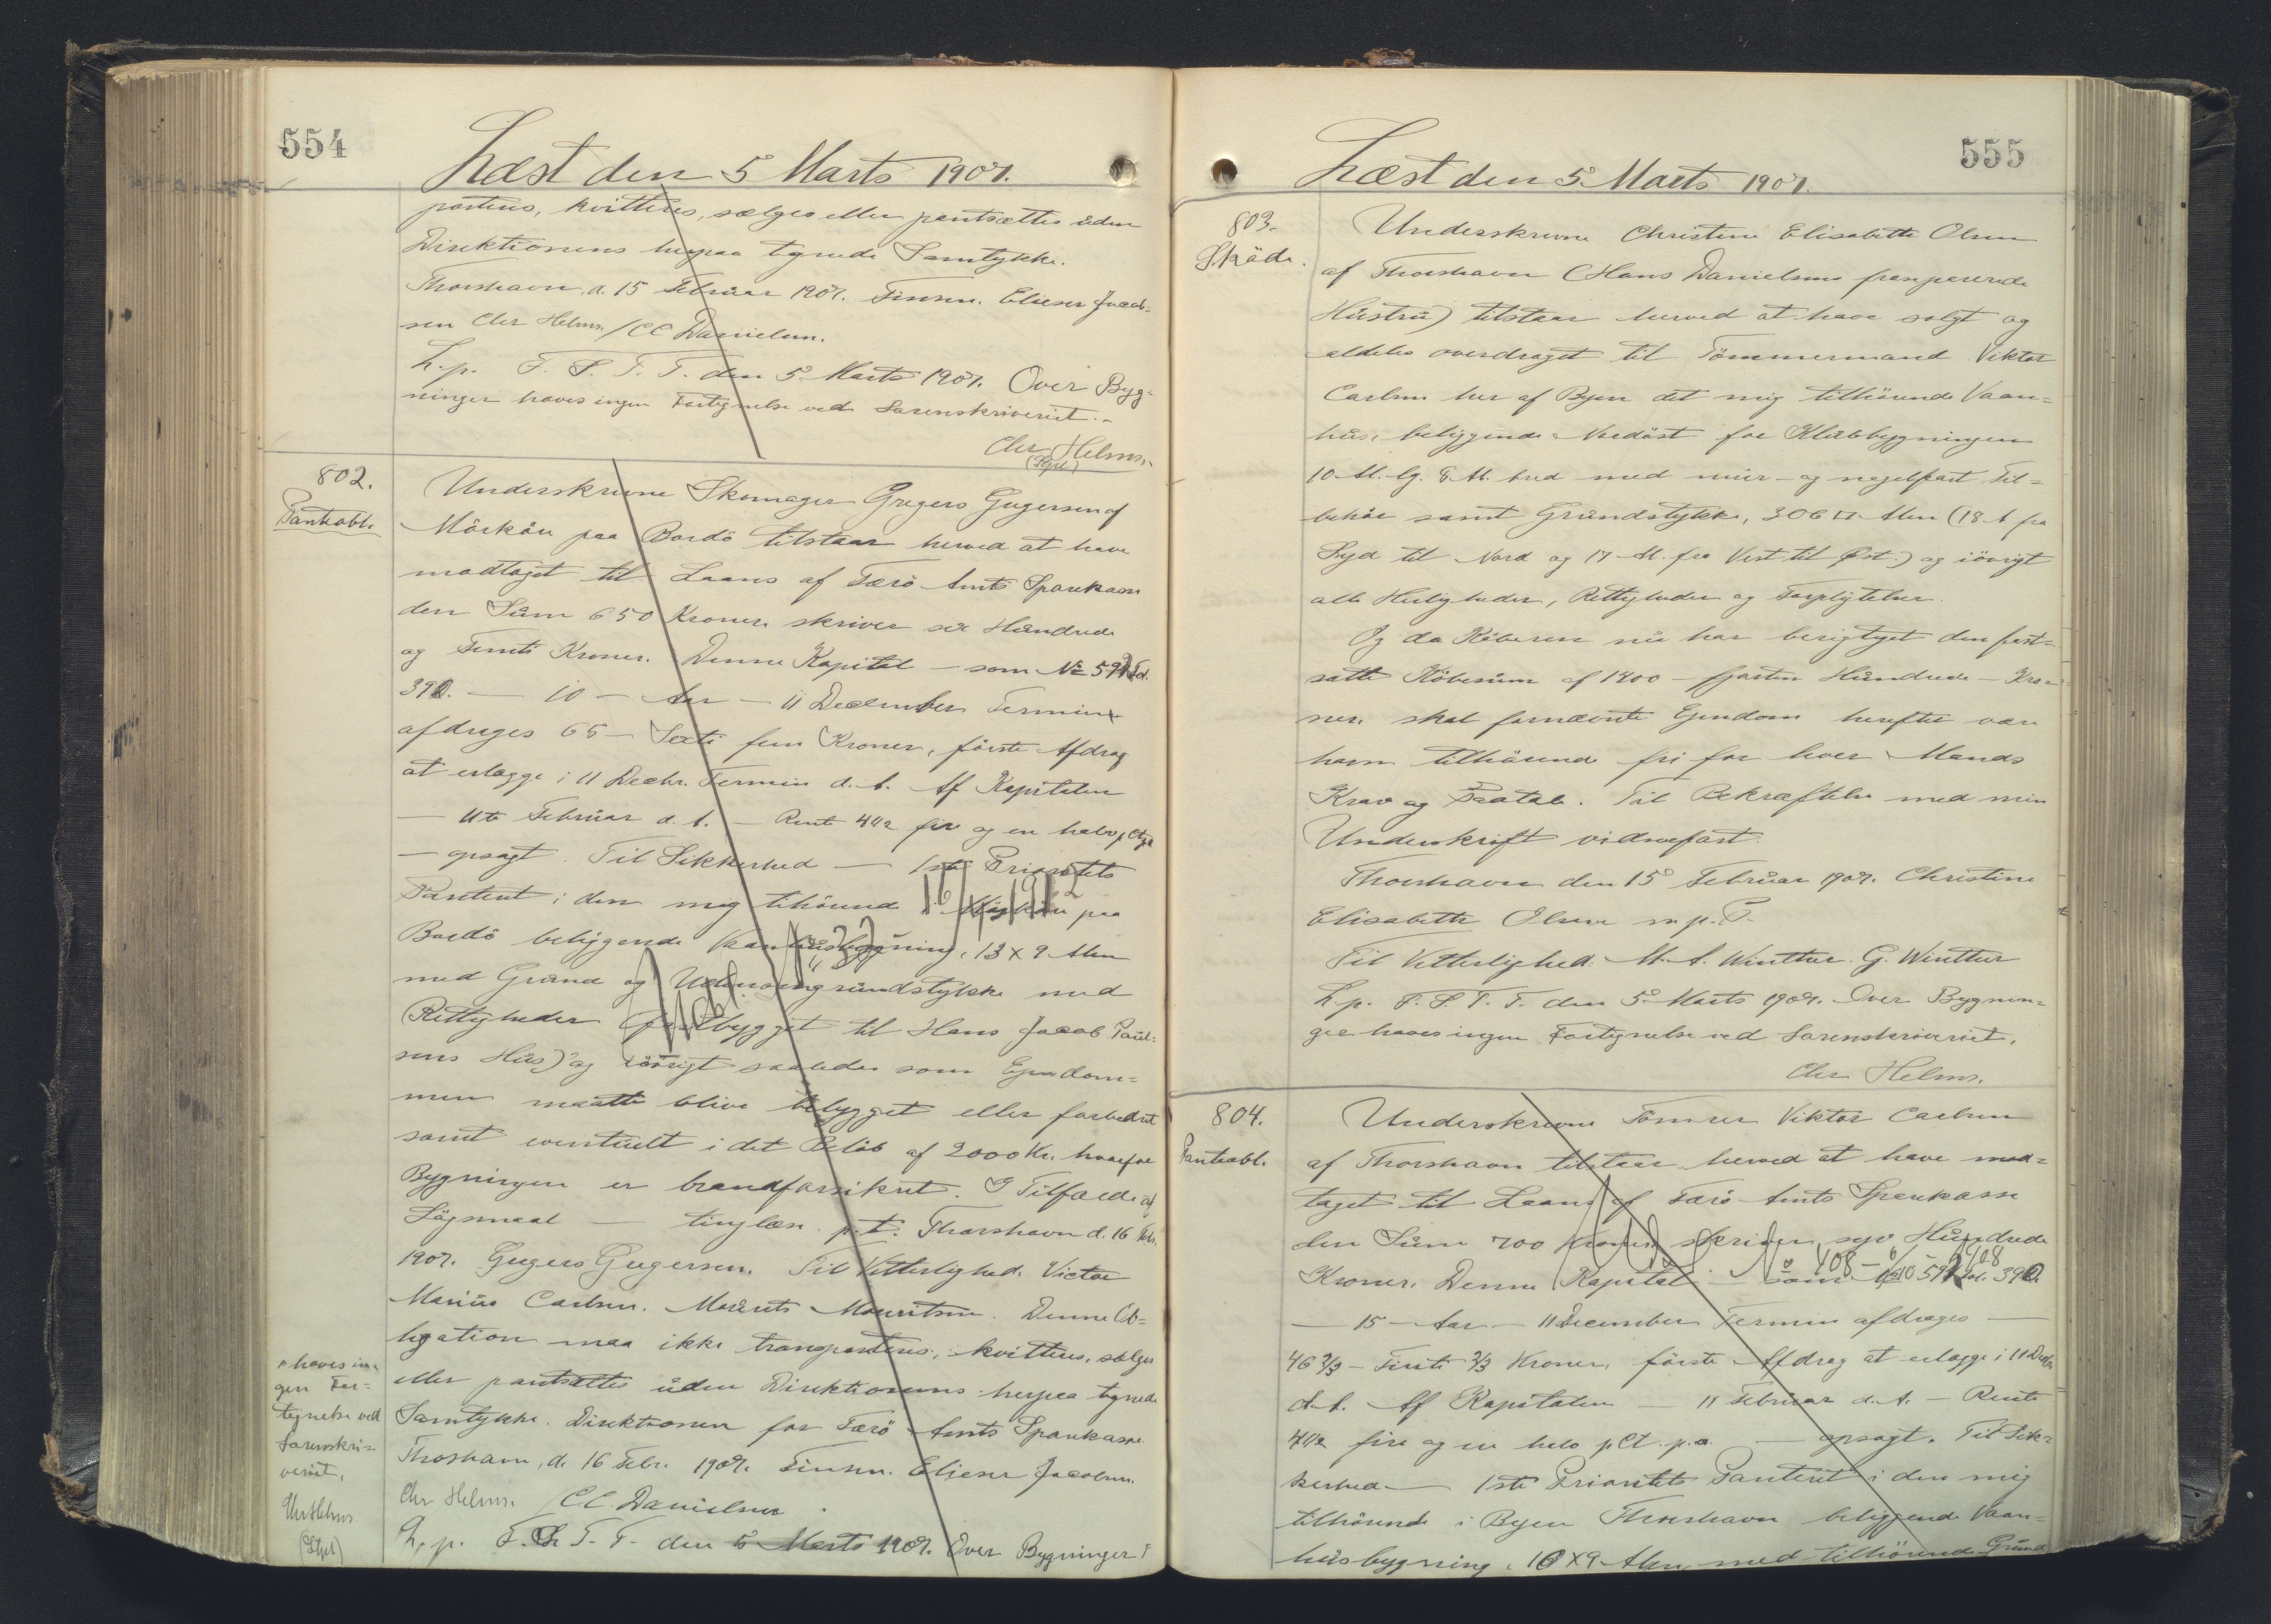 554
Læst den 5 Marts 1907.
porteres, kvitteres, sælges eller pantsættes uden
Direktionens herpaa tegnede Samtykke.
Thorshavn, d. 15 Februar 1907. Finsen. Elieser Jacob=
sen Chr Helms /CC Danielsen.
L. p. F. S. T. T. den 5 Marts 1907. Over Byg=
ninger haves ingen Fortegnelse ved Sorenskriveriet.-
Chr Helms.
(Stpl)
802.
Pantobl.
Underskrevne Skomager Gregers Gregersen af
Mörköre paa Bordö tilstaar herved at have
modtaget til Laans af Færö Amts Sparekasse
den Sum 650 Kroner skriver sex Hundrede
og Femti Kroner. Denne Kapital — som No 592 Fol.
390. — 10 — Aar — 11 December Termin
afdrages 65 — Sexti fem Kroner, förste Afdrag
at erlægge i 11 Decbr. Termin d. A. Af Kapitalen
— 11te Februar d. A. — Rente 4 1/2 fire og en halv pCt p.a
— opsagt. Til Sikkerhed — 1ste Prioritets
Panteret i den mig tilhörende i Mörköre paa
Bordö beliggende Vaanhusbygning, 13 x 9 Alen
med Grund og Udenomsgrundstykke med
Rettigheder (fastbygget til Hans Jacob Poul=
sens Hus) og iövrigt saaledes som Ejendom=
men maatte blive bebygget eller forbedret
samt eventuelt i det Belöb af 2000 Kr. hvorfor
Bygningen er brandforsikret. I Tilfælde af
Lögsmaal — tinglæse. p. t. Thorshavn d. 16 Feb.
1907. Gregers Gregersen. Til Vitterlighed. Victor
Marius Carlsen. Mourits Mouritsen. Denne Ob=
ligation maa ikke transporteres, kvitteres, sælges
eller pantsættes uden Direktionens herpaa tegnede
Samtykke. Direktionen for Færö Amts Sparekasse
Thorshavn, d. 16 Febr. 1907. Finsen. Elieser Jacobsen.
Chr Helms. /CC. Danielsen
L. p. F. S. T. T. den 5 Marts 1907. Over Bygninger
haves in=
gen For=
tegnelse ved
Sorenskri=
veriet.
Chr Helms
(Stpl)
16/ 1912
555
Læst den 5 Marts 1907.
803.
Sköde.
Underskrevne Christine Elisabeth Olsen
af Thorshavn (Hans Danielsens fraseparerede
Hustru) tilstaar herved at have solgt og
aldeles overdraget til Tömmermand Viktor
Carlsen her af Byen det mig tilhörende Vaan=
hus, beliggende Nordöst for Klubbygningen
10 Al. lg. 8 Al. bred med mur- og nagelfast Til=
behör samt Grundstykke, 306 □ Alen (18 A fra
Syd til Nord og 17 Al. fra Vest til Øst) og iövrigt
alle Herligheder, Rettigheder og Forpligtelser.
Og da Köberen nu har berigtiget den fast=
satte Köbesum af 1400 — fjorten Hundrede — Kro=
ner, skal fornævnte Ejendom herefter være
ham tilhörende fri for hver Mands
Krav og Paatale. Til Bekræftelse med min
Underskrift vidnefast.
Thorshavn den 15 Februar 1907. Christine
Elisabeth Olsen m. p. P.
Til Vitterlighed: M. A. Winther. G. Winther
L. p. F. S. T. T. den 5 Marts 1907. Over Bygnin=
ger haves ingen Fortegnelse ved Sorenskriveriet.
Chr Helms.
804.
Pantobl.
Underskrevne Tömrer Viktor Carlsen
af Thorshavn tilstaar herved at have mod=
taget til Laans af Færö Amts Sparekasse
den Sum 700 Kroner skriver syv Hundrede
Kroner. Denne Kapital — som No 592 Fol. 390.
— 15 — Aar — 11 December Termin afdrages —
46 2/3 — Firti 2/3 Kroner, förste Afdrag at erlægge i 11 Decbr
d. A. Af Kapitalen — 11 Februar d. A. — Rente
4 1/2 fire og en halv pCt. p. a. — opsagt. Til Sik=
kerhed — 1ste Prioritets Panteret i den mig
tilhörende i Byen Thorshavn beliggende Vaan=
husbygning, 10 x 9 Alen, med tilhörende Grund